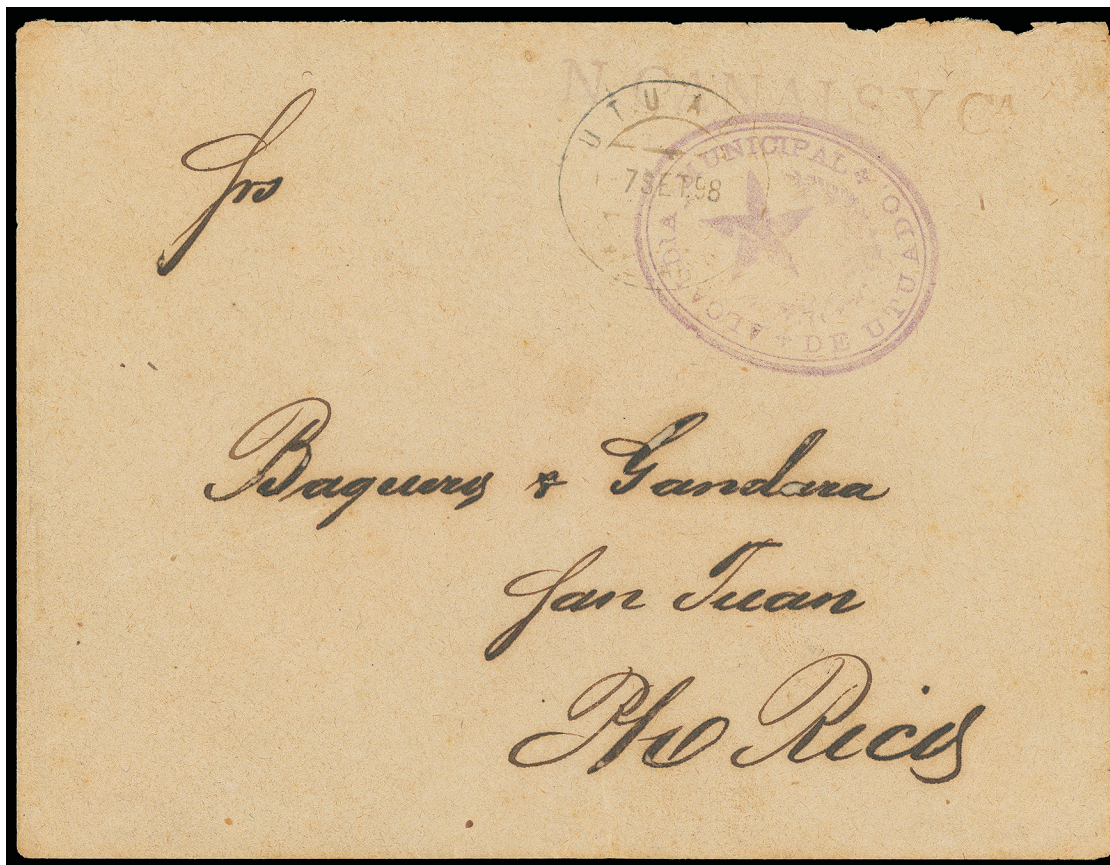 N. CANALS Y CA
UTUA
7 SET 98
ALCALDIA MUNICIPAL DE UTUADO.
Srs
Baquero & Gandara
San Juan
Pto Rico